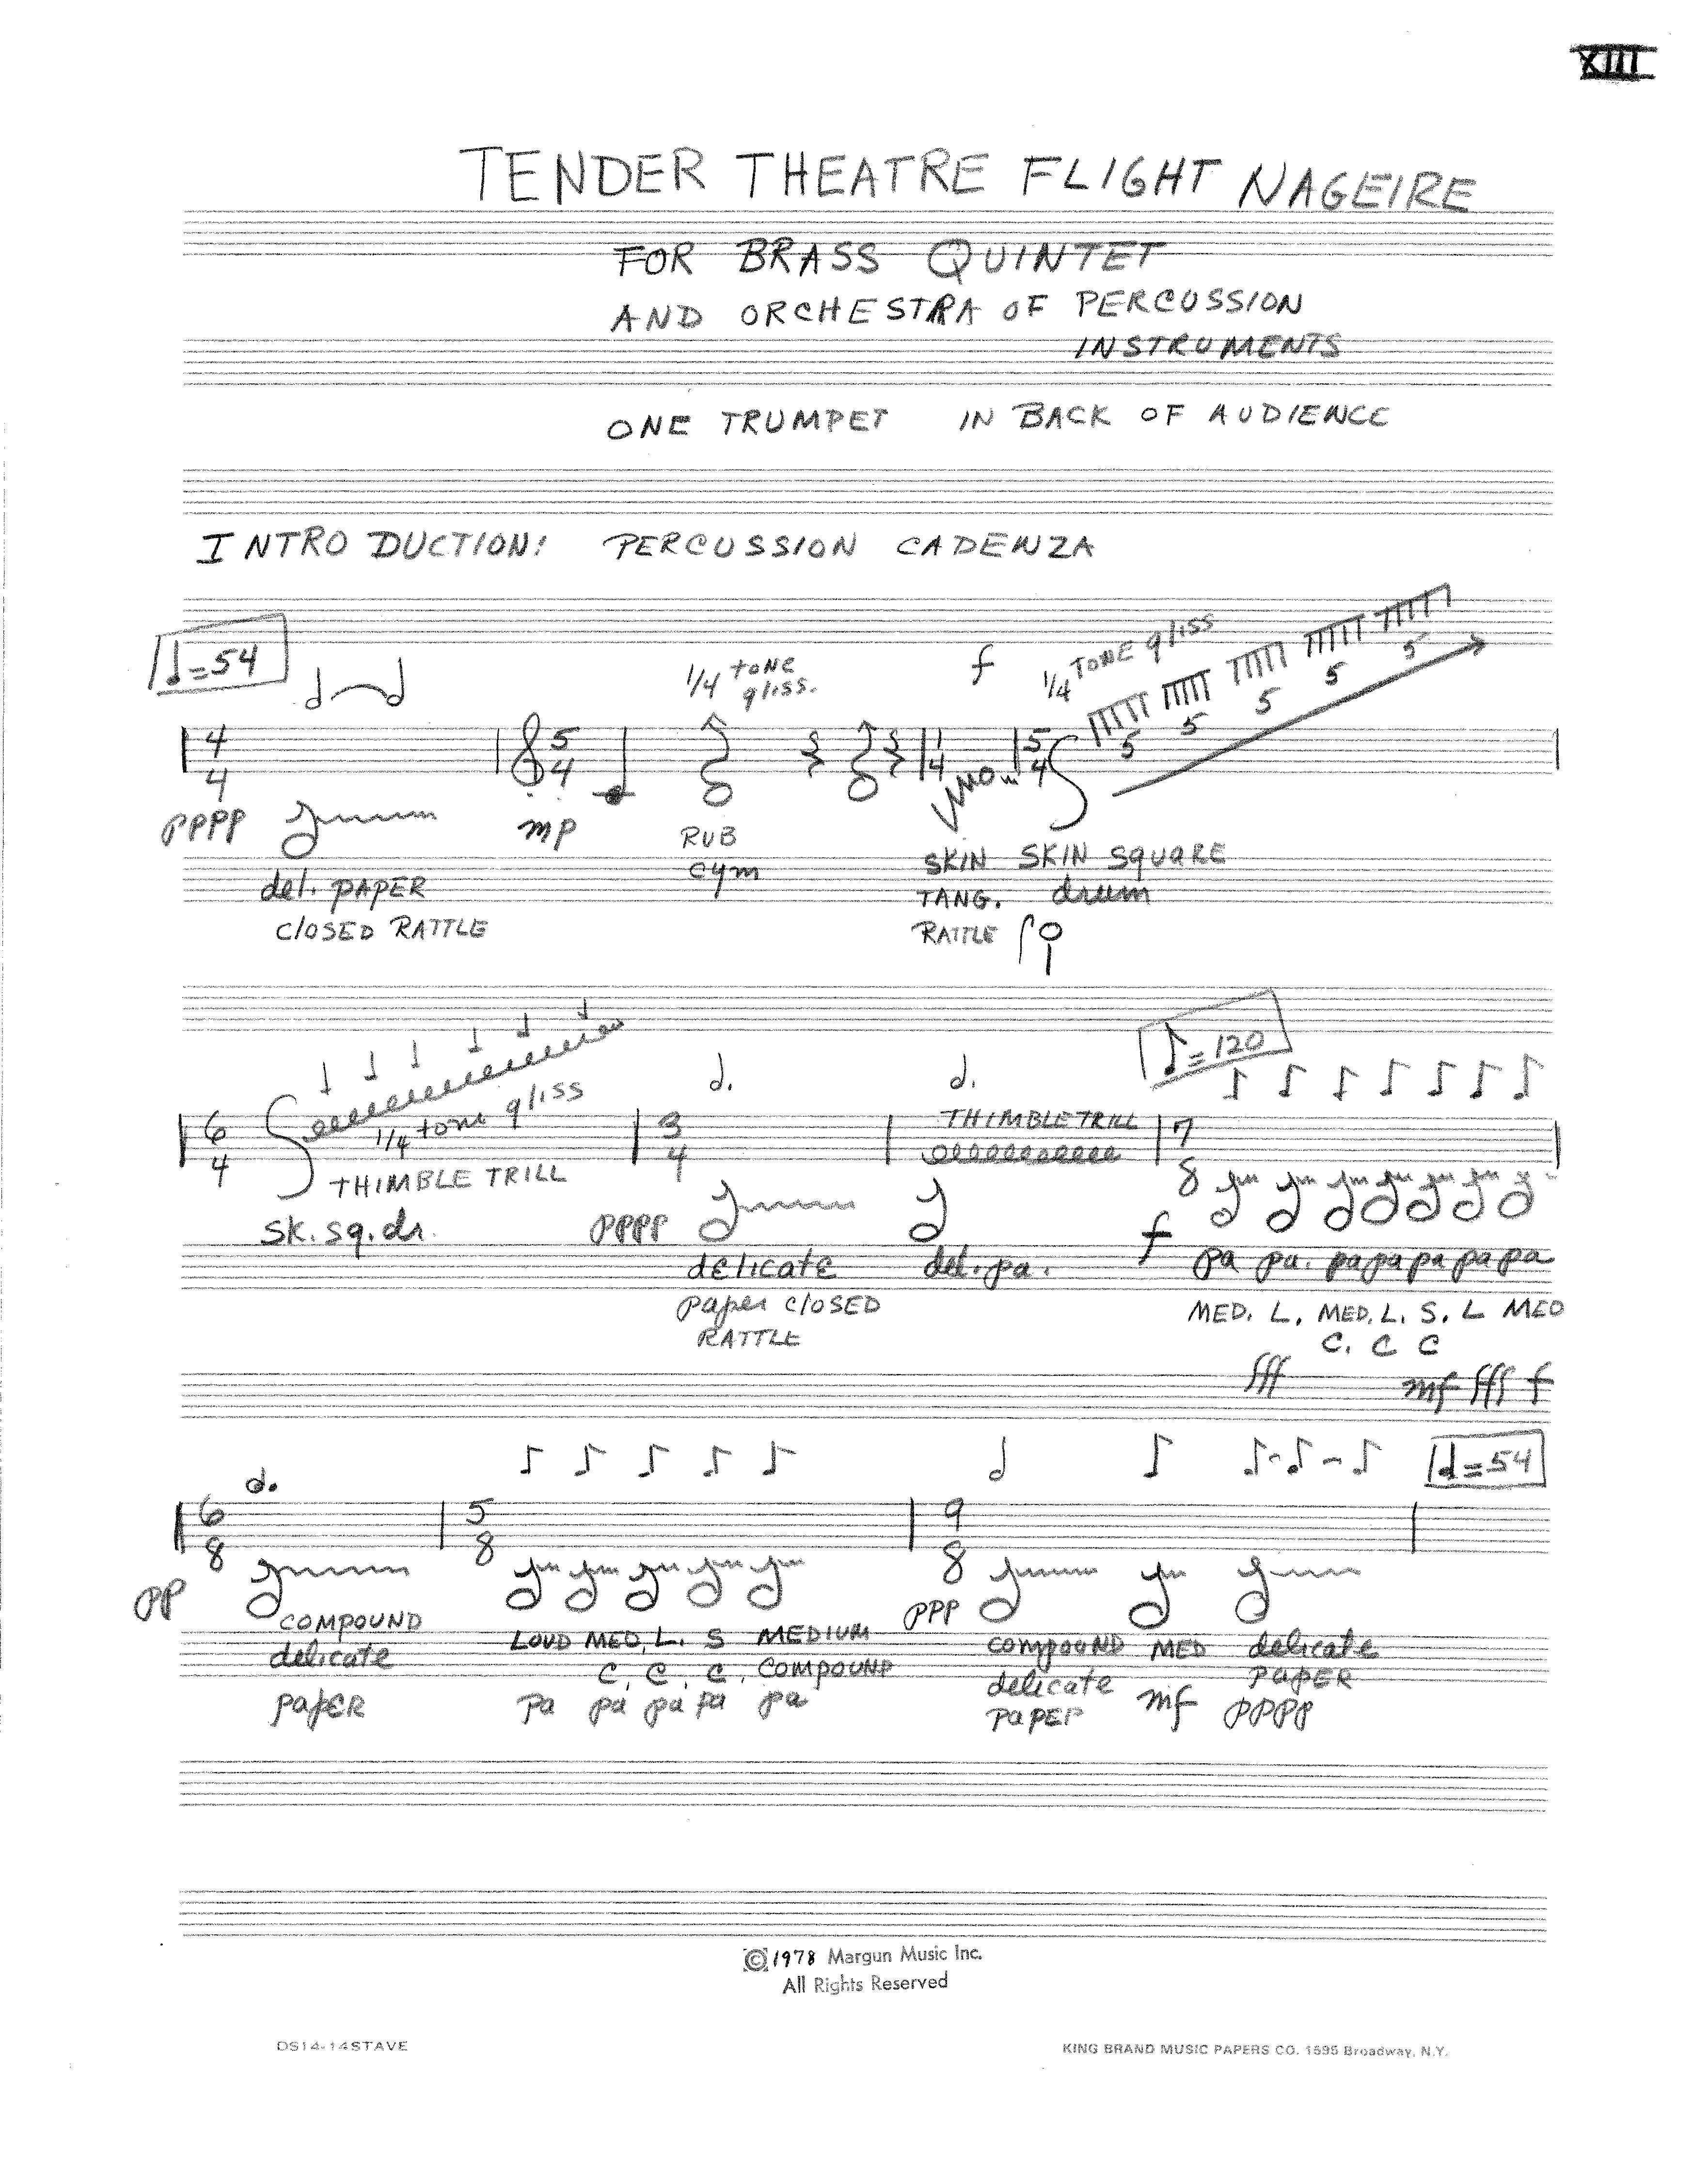 XIII
TENDER THEATRE FLIGHT NAGEIRE
FOR BRASS QUINTET
AND ORCHESTRA OF PERCUSSION
INSTRUMENTS
ONE TRUMPET IN BACK OF AUDIENCE
INTRODUCTION: PERCUSSION CADENZA
=54
1/4 tone gliss.
f
1/4 TONE gliss
5 5 5 5 5
4/4 5/4 1/4 5/4
pppp mp
RUB
cym
del. PAPER
CLOSED RATTLE
SKIN
TANG.
RATTLE
SKIN SQUARE
drum
=120
1/4 tone gliss
THIMBLE TRILL
THIMBLE TRILL
6/4 3/4 7/8
sk. sq. dr.
pppp
delicate
paper CLOSED
RATTLE
del. pa.
f
pa pa. pa pa pa pa pa
MED. L. MED. L. S. L MED
C. C C
fff mf fff f
=54
6/8 5/8 9/8
pp
COMPOUND
delicate
paper
LOUD MED. L. S MEDIUM
C, C, C, COMPOUND
Pa pa pa pa pa
ppp
compound
delicate
PAPER
MED
mf
delicate
PAPER
pppp
©1978 Margun Music Inc.
All Rights Reserved
DS14-14STAVE
KING BRAND MUSIC PAPERS CO. 1595 Broadway, N.Y.